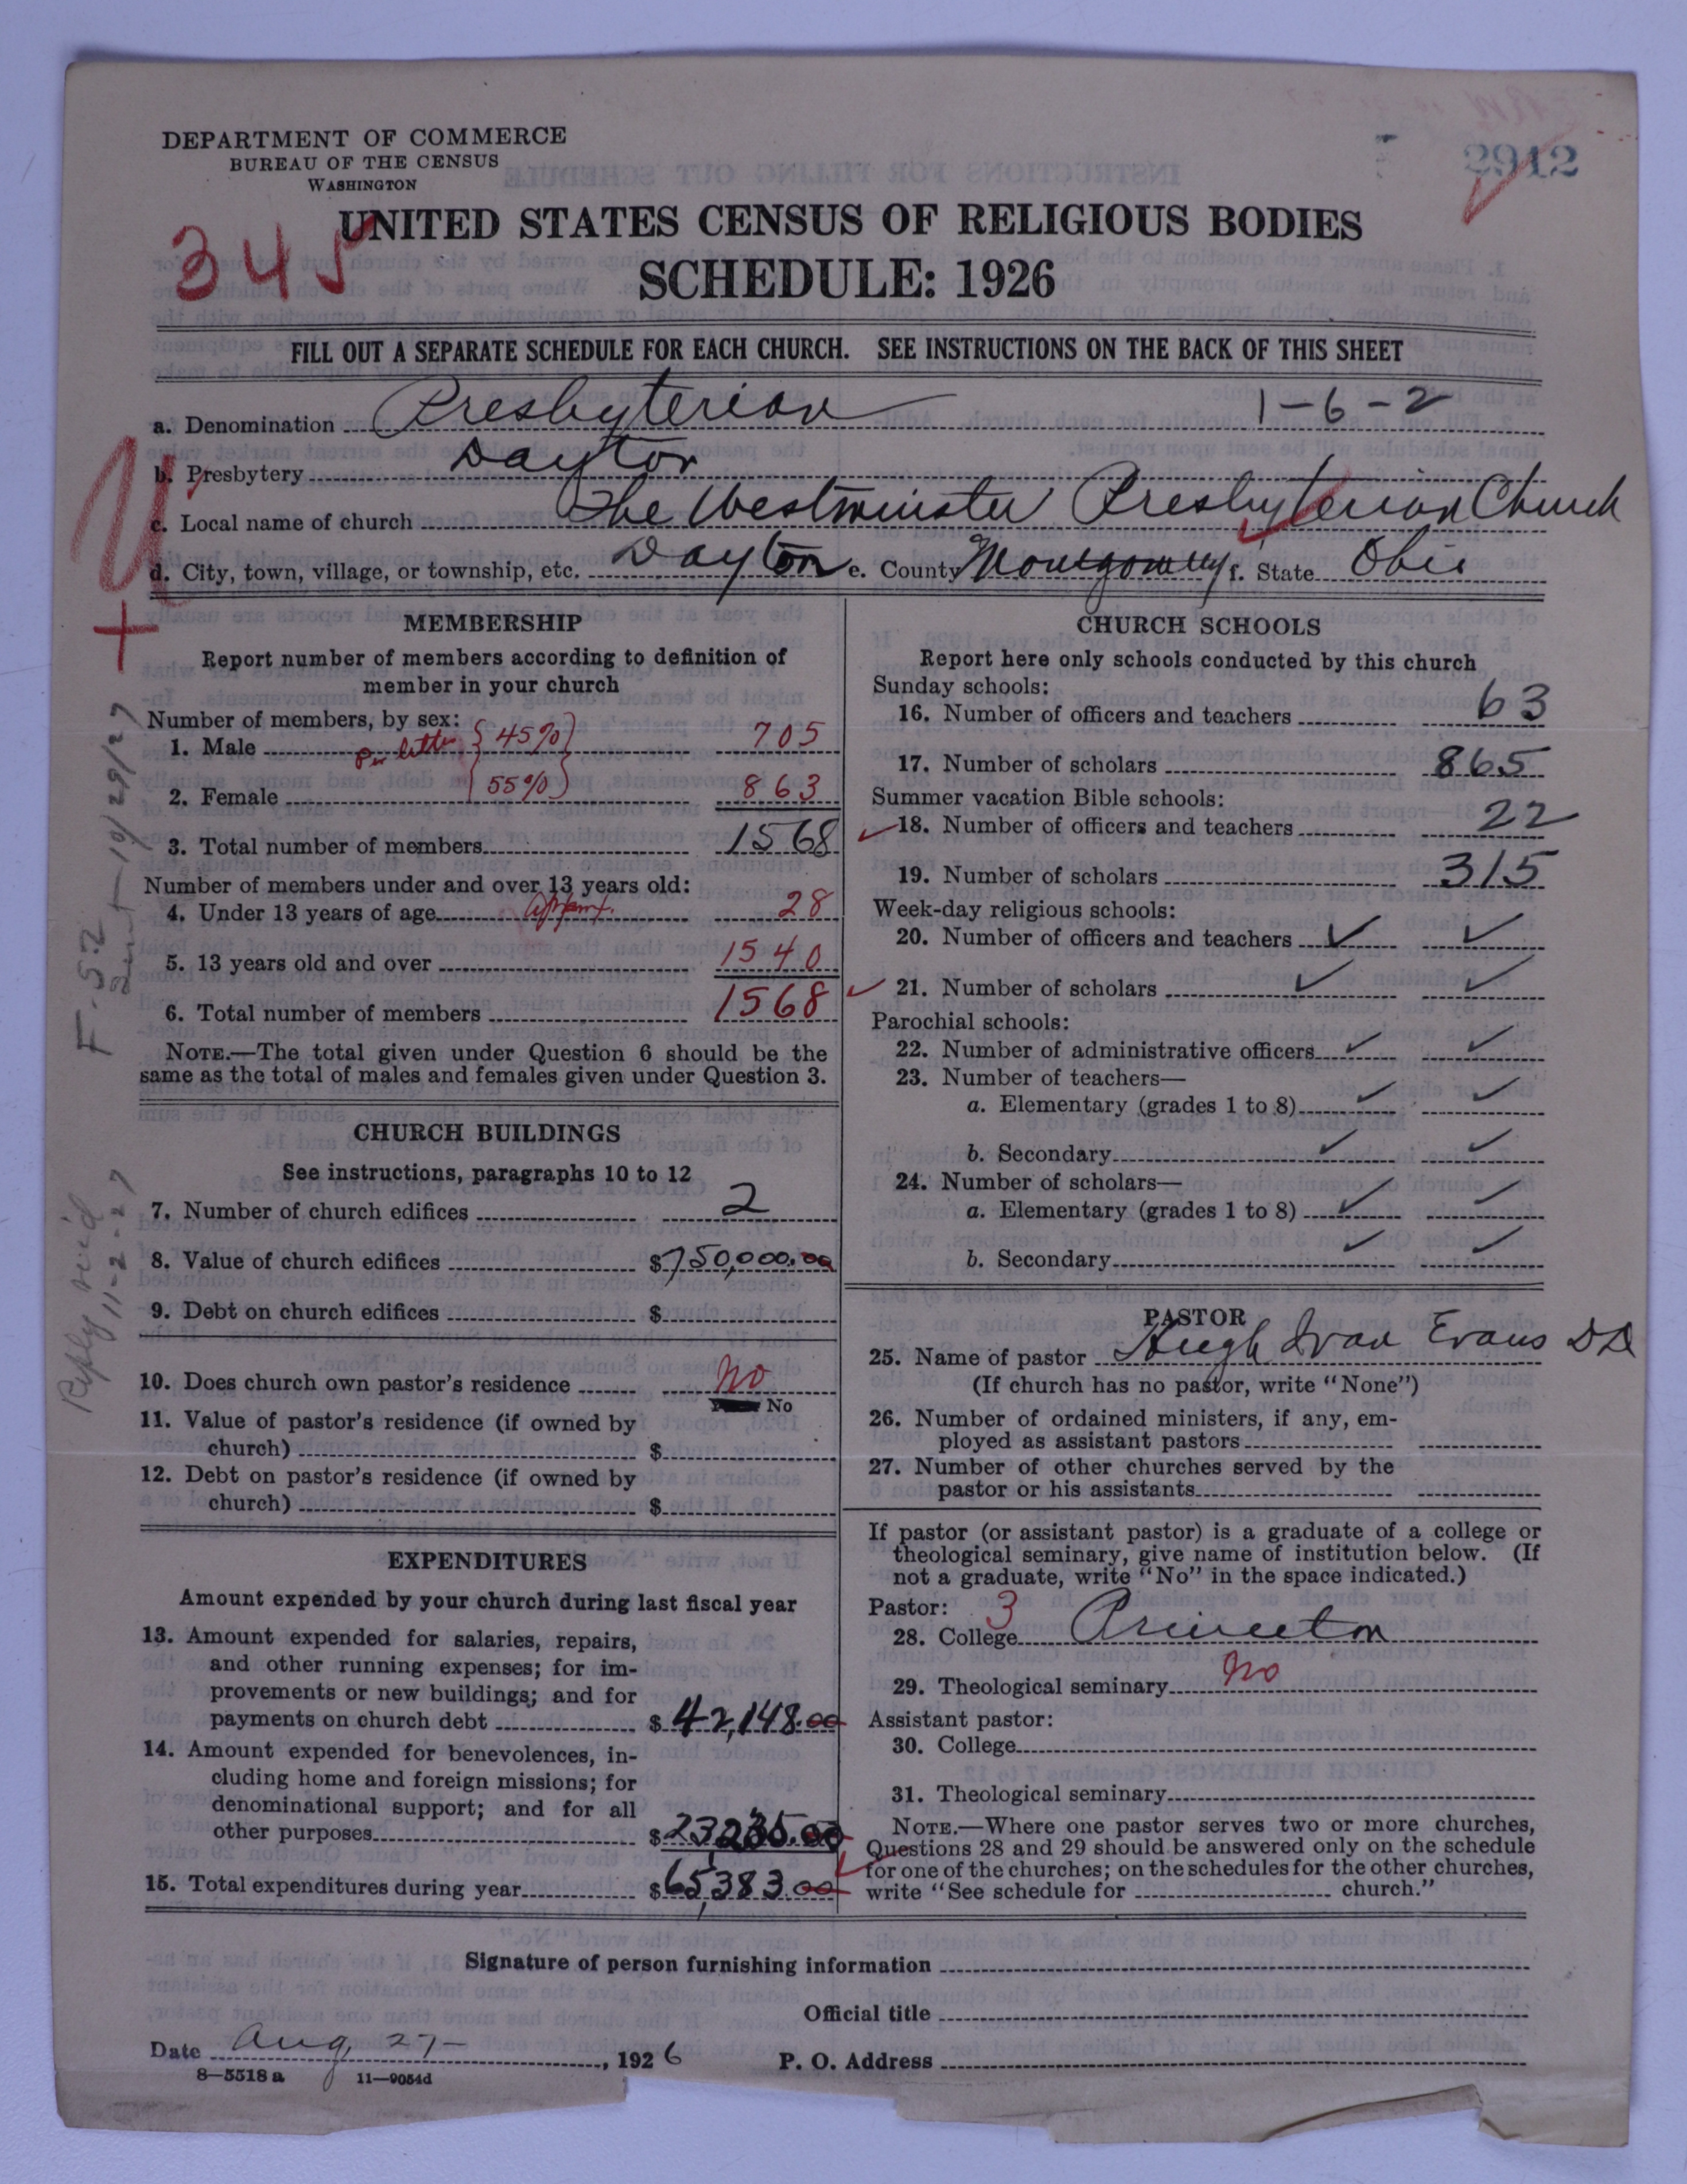 DEPARTMENT OF COMMERCE
BUREAU OF THE CENSUS
WASHINGTON
2912
345
UNITED STATES CENSUS OF RELIGIOUS BODIES
SCHEDULE: 1926
FILL OUT A SEPARATE SCHEDULE FOR EACH CHURCH. SEE INSTRUCTIONS ON THE BACK OF THIS SHEET
a. Denomination Presbyterian 1-6-2
b. Presbytery Dayton
c. Local name of church The Westminster Presbyterian Church
d. City, town, village, or township, etc. Dayton e. County Montgomery f. State Ohio
MEMBERSHIP
Report number of members according to definition of
member in your church
Number of members, by sex:
1. Male per letter {45%} 705
2. Female {55%} 863
3. Total number of members 1568
Number of members under and over 13 years old:
4. Under 13 years of age 28
5. 13 years old and over 1540
6. Total number of members 1568
NOTE.—The total given under Question 6 should be the
same as the total of males and females given under Question 3.
CHURCH BUILDINGS
See instructions, paragraphs 10 to 12
7. Number of church edifices 2
8. Value of church edifices $750,000.00
9. Debt on church edifices $
10. Does church own pastor's residence No
No
11. Value of pastor's residence (if owned by
church) $
12. Debt on pastor's residence (if owned by
church) $
EXPENDITURES
Amount expended by your church during last fiscal year
13. Amount expended for salaries, repairs,
and other running expenses; for im-
provements or new buildings; and for
payments on church debt $42,148.00
14. Amount expended for benevolences, in-
cluding home and foreign missions; for
denominational support; and for all
other purposes $23,235.00
15. Total expenditures during year $65,383.00
CHURCH SCHOOLS
Report here only schools conducted by this church
Sunday schools:
16. Number of officers and teachers 63
17. Number of scholars 865
Summer vacation Bible schools:
18. Number of officers and teachers 22
19. Number of scholars 315
Week-day religious schools:
20. Number of officers and teachers
21. Number of scholars
Parochial schools:
22. Number of administrative officers
23. Number of teachers—
a. Elementary (grades 1 to 8)
b. Secondary
24. Number of scholars—
a. Elementary (grades 1 to 8)
b. Secondary
PASTOR
25. Name of pastor Hugh Ivan Evans DD
(If church has no pastor, write "None")
26. Number of ordained ministers, if any, em-
ployed as assistant pastors
27. Number of other churches served by the
pastor or his assistants
If pastor (or assistant pastor) is a graduate of a college or
theological seminary, give name of institution below. (If
not a graduate, write "No" in the space indicated.)
Pastor: 3
28. College Princeton
29. Theological seminary No
Assistant pastor:
30. College
31. Theological seminary
NOTE.—Where one pastor serves two or more churches,
Questions 28 and 29 should be answered only on the schedule
for one of the churches; on the schedules for the other churches,
write "See schedule for church."
Signature of person furnishing information
Official title
Date Aug, 27- , 1926 P. O. Address
8—5518 a 11—9054d
F-52
Sent 10/29/27
Reply rec'd
11-2-27